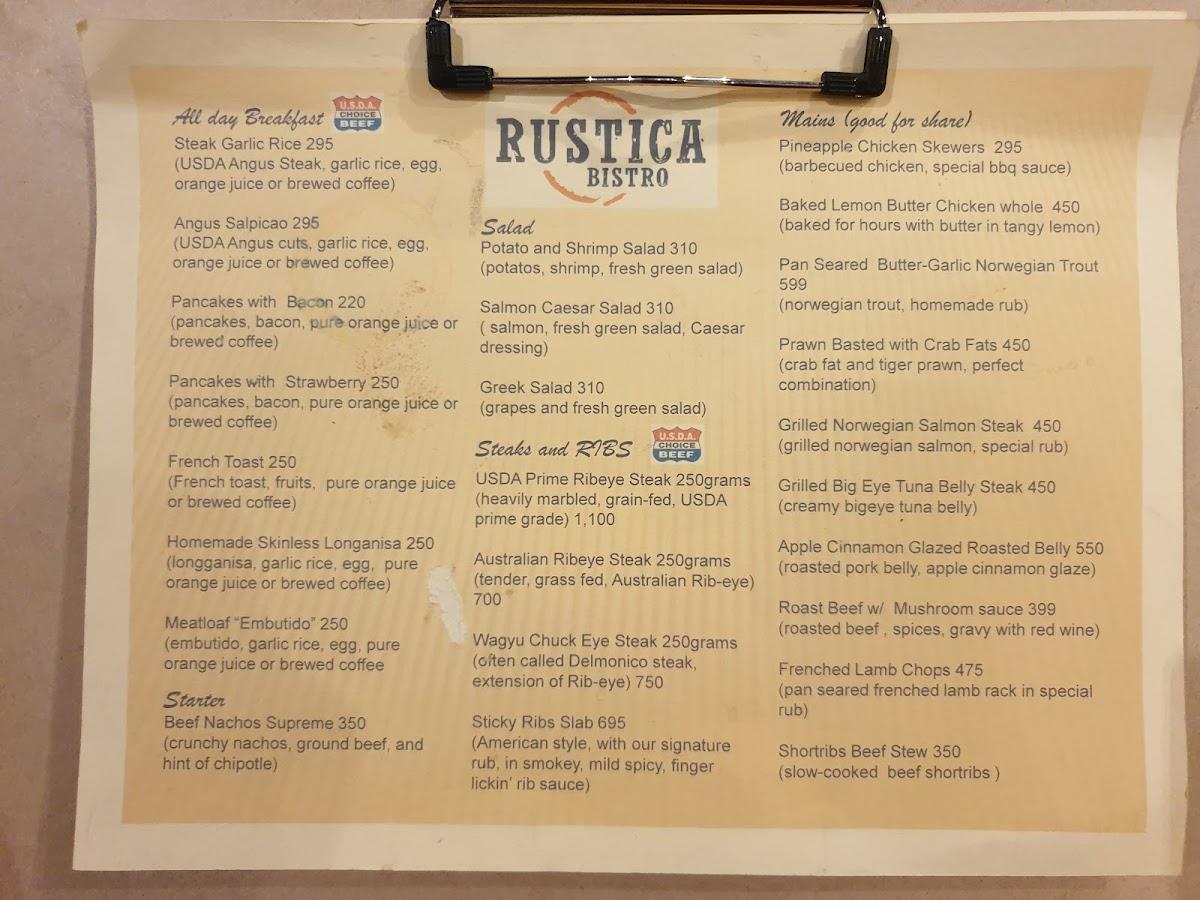 All day Breakfast
U.S.D.A.
CHOICE
BEEF
Steak Garlic Rice 295
(USDA Angus Steak, garlic rice, egg,
orange juice or brewed coffee)
Angus Salpicao 295
(USDA Angus cuts, garlic rice, egg,
orange juice or brewed coffee)
Pancakes with Bacon 220
(pancakes, bacon, pure orange juice or
brewed coffee)
Pancakes with Strawberry 250
(pancakes, bacon, pure orange juice or
brewed coffee)
French Toast 250
(French toast, fruits, pure orange juice
or brewed coffee)
Homemade Skinless Longanisa 250
(longganisa, garlic rice, egg, pure
orange juice or brewed coffee)
Meatloaf “Embutido” 250
(embutido, garlic rice, egg, pure
orange juice or brewed coffee
Starter
Beef Nachos Supreme 350
(crunchy nachos, ground beef, and
hint of chipotle)
RUSTICA
BISTRO
Salad
Potato and Shrimp Salad 310
(potatos, shrimp, fresh green salad)
Salmon Caesar Salad 310
( salmon, fresh green salad, Caesar
dressing)
Greek Salad 310
(grapes and fresh green salad)
Steaks and RIBS
U.S.D.A.
CHOICE
BEEF
USDA Prime Ribeye Steak 250grams
(heavily marbled, grain-fed, USDA
prime grade) 1,100
Australian Ribeye Steak 250grams
(tender, grass fed, Australian Rib-eye)
700
Wagyu Chuck Eye Steak 250grams
(often called Delmonico steak,
extension of Rib-eye) 750
Sticky Ribs Slab 695
(American style, with our signature
rub, in smokey, mild spicy, finger
lickin’ rib sauce)
Mains (good for share)
Pineapple Chicken Skewers 295
(barbecued chicken, special bbq sauce)
Baked Lemon Butter Chicken whole 450
(baked for hours with butter in tangy lemon)
Pan Seared Butter-Garlic Norwegian Trout
599
(norwegian trout, homemade rub)
Prawn Basted with Crab Fats 450
(crab fat and tiger prawn, perfect
combination)
Grilled Norwegian Salmon Steak 450
(grilled norwegian salmon, special rub)
Grilled Big Eye Tuna Belly Steak 450
(creamy bigeye tuna belly)
Apple Cinnamon Glazed Roasted Belly 550
(roasted pork belly, apple cinnamon glaze)
Roast Beef w/ Mushroom sauce 399
(roasted beef , spices, gravy with red wine)
Frenched Lamb Chops 475
(pan seared frenched lamb rack in special
rub)
Shortribs Beef Stew 350
(slow-cooked beef shortribs )